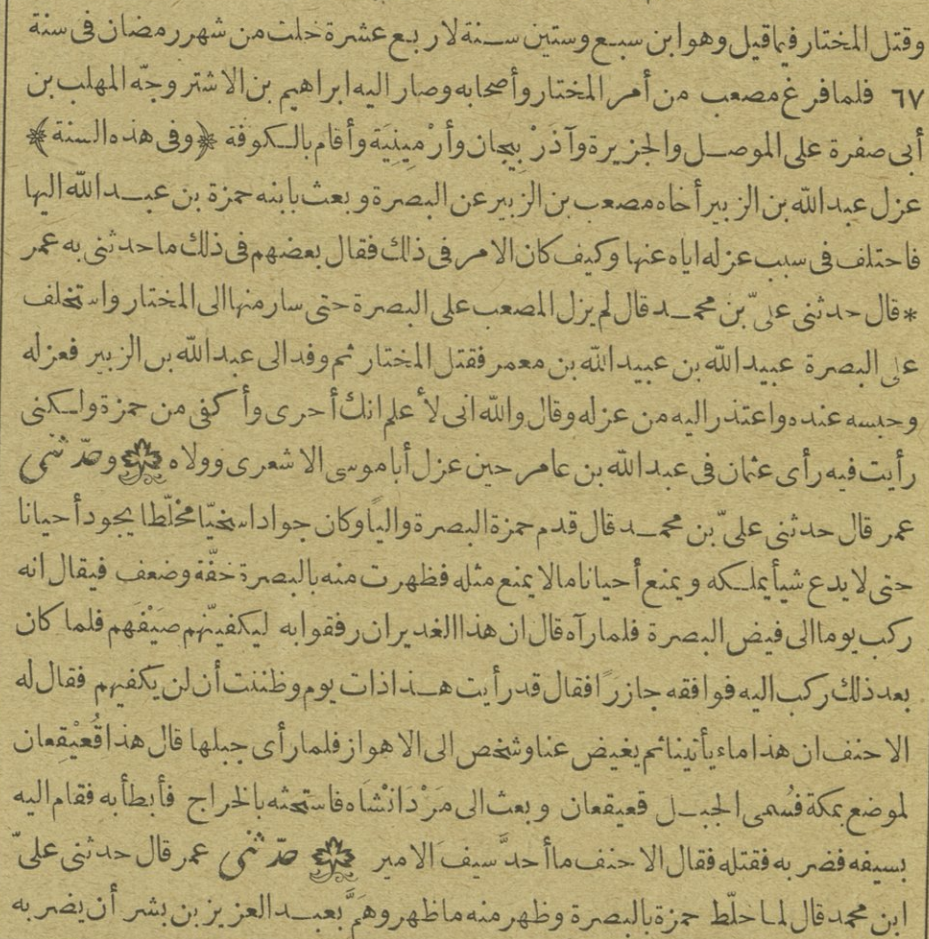 وقتل المختار فيما قيل وهو ابن سبع وستين سنة لاربع عشرة خلت من شهر رمضان فى سنة
٦٧ فلما فرغ مصعب من أمر المختار وأصحابه وصار اليه ابراهيم بن الاشتر وجّه المهلب بن
أبى صفرة على الموصل والجزيرة وآذَرْبيجان وأرْمِينِيَة وأقام بالكوفة ﴿وفى هذه السنة﴾
عزل عبد الله بن الزبير أخاه مصعب بن الزبير عن البصرة وبعث بابنه حمزة بن عبد الله اليها
فاختلف فى سبب عزله اياه عنها وكيف كان الامر فى ذلك فقال بعضهم فى ذلك ما حدثنى به عمر
* قال حدثنى علىّ بن محمد قال لم يزل المصعب على البصرة حتى سار منها الى المختار واستخلف
على البصرة عبيد الله بن عبيد الله بن معمر فقتل المختار ثم وفد الى عبد الله بن الزبير فعزله
وحبسه عنده واعتذر اليه من عزله وقال والله انى لأعلم انك أحرى وأكفى من حمزة ولكنى
رأيت فيه رأى عثمان فى عبد الله بن عامر حين عزل أبا موسى الاشعرى وولاه وحدّثنى
عمر قال حدثنى علىّ بن محمد قال قدم حمزة البصرة والياً وكان جوادا سخيّا مخلّطا يجود أحيانا
حتى لا يدع شيأ يملكه ويمنع أحيانا ما لا يمنع مثله فظهرت منه بالبصرة خفّة وضعف فيقال انه
ركب يوما الى فيض البصرة فلما رآه قال ان هذا الغدير ان رفقوا به ليكفينّهم صَيْفَهم فلما كان
بعد ذلك ركب اليه فوافقه جازرًا فقال قد رأيت هذا ذات يوم وظننت أن لن يكفيهم فقال له
الاحنف ان هذا ماء يأتينا ثم يغيض عنا وشخص الى الاهواز فلما رأى جبلها قال هذا قُعَيْقِعان
لموضع بمكة فسُمى الجبل قعيقعان وبعث الى مَرْدَانْشَاه فاستحثه بالخراج فأبطأ به فقام اليه
بسيفه فضربه فقتله فقال الاحنف ما أحدَّ سيفَ الامير حدّثنى عمر قال حدثنى علىّ
ابن محمد قال لما خلّط حمزة بالبصرة وظهر منه ما ظهر وهَمَّ بعبد العزيز بن بشر أن يضربه